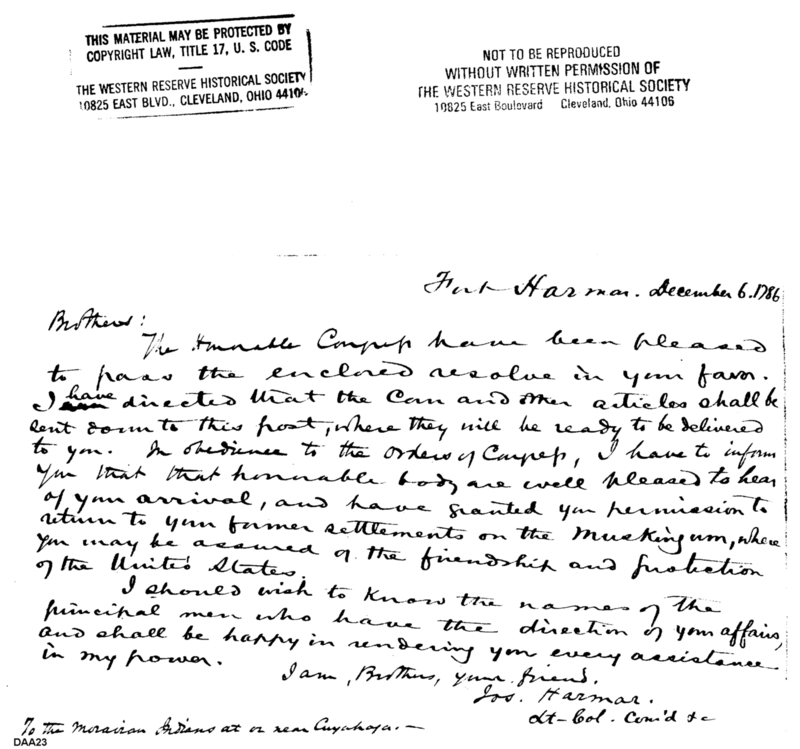 THIS MATERIAL MAY BE PROTECTED BY
COPYRIGHT LAW, TITLE 17, U. S. CODE
THE WESTERN RESERVE HISTORICAL SOCIETY
10825 EAST BLVD., CLEVELAND, OHIO 44106
NOT TO BE REPRODUCED
WITHOUT WRITTEN PERMISSION OF
THE WESTERN RESERVE HISTORICAL SOCIETY
10825 East Boulevard Cleveland, Ohio 44106
Fort Harmar. December 6. 1786
Brothers:
The Honorable Congress have been pleased
to pass the enclosed resolve in your favor.
I have directed that the Corn and other articles shall be
sent down to this post, where they will be ready to be delivered
to you. In obedience to the orders of Congress, I have to inform
you that that honourable body are well pleased to hear
of your arrival, and have granted you permission to
return to your former settlements on the Muskingum, where
you may be assured of the friendship and protection
of the United States.
I should wish to know the names of the
principal men who have the direction of your affairs,
and shall be happy in rendering you every assistance
in my power.
I am, Brothers, your friend,
Jos. Harmar.
Lt-Col. Com'd &c
To the Moravian Indians at or near Cuyahoga.—
DAA23